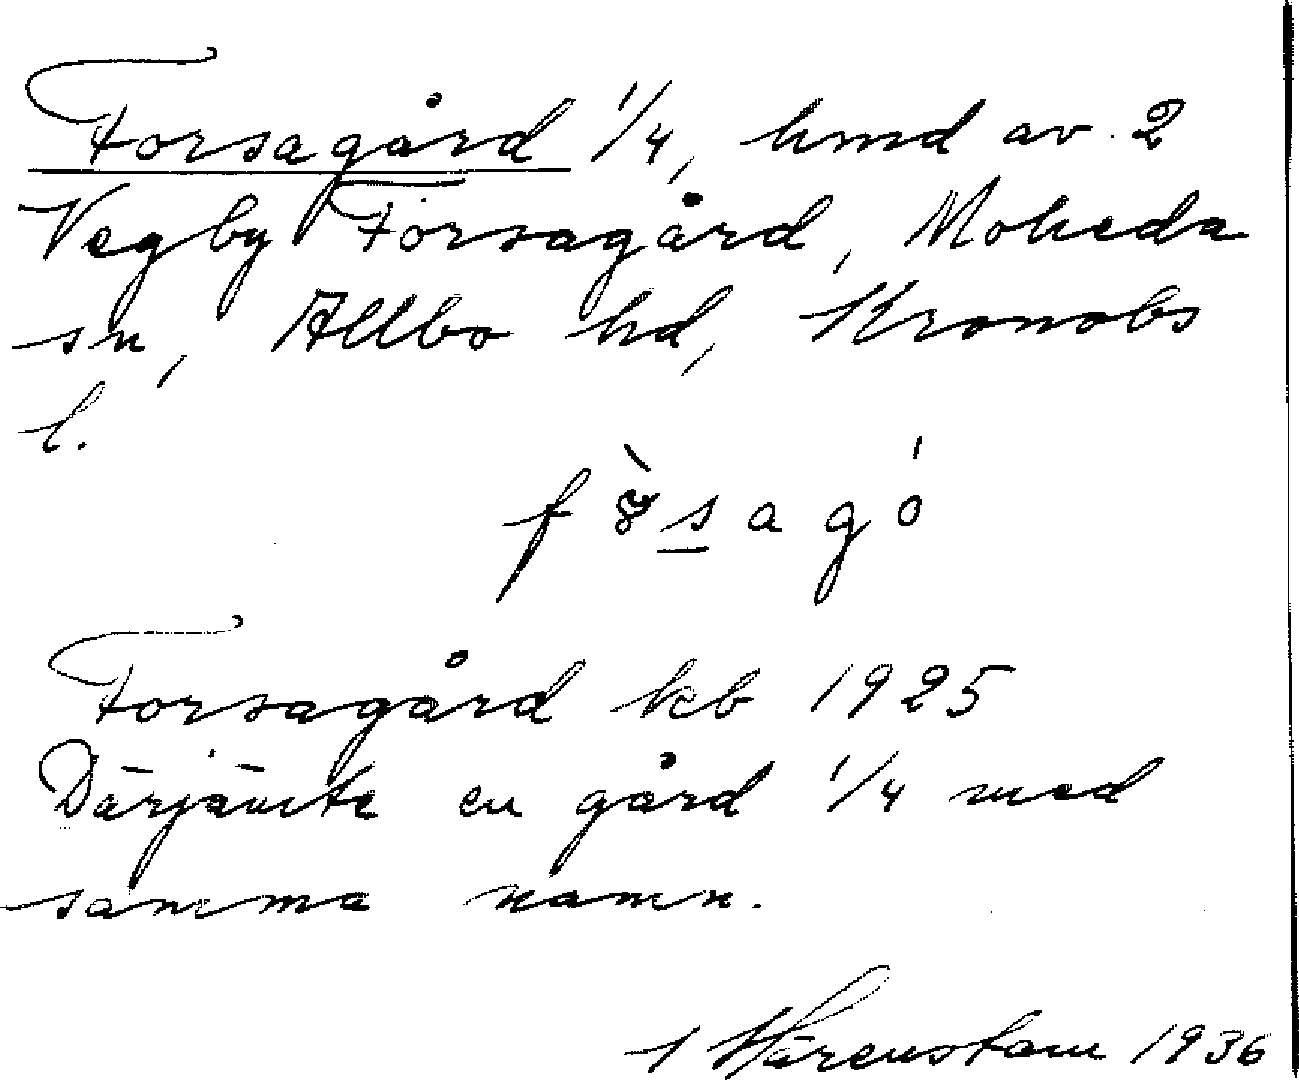 Forsagård 1/4, hmd av 2
Vegby Forsagård, Moheda
sn, Allbo hd, Kronobs
l.
f s a g ó
Forsagård kb 1925
Därjämte en gård 1/4 med
samma namn.
Härenstam 1936